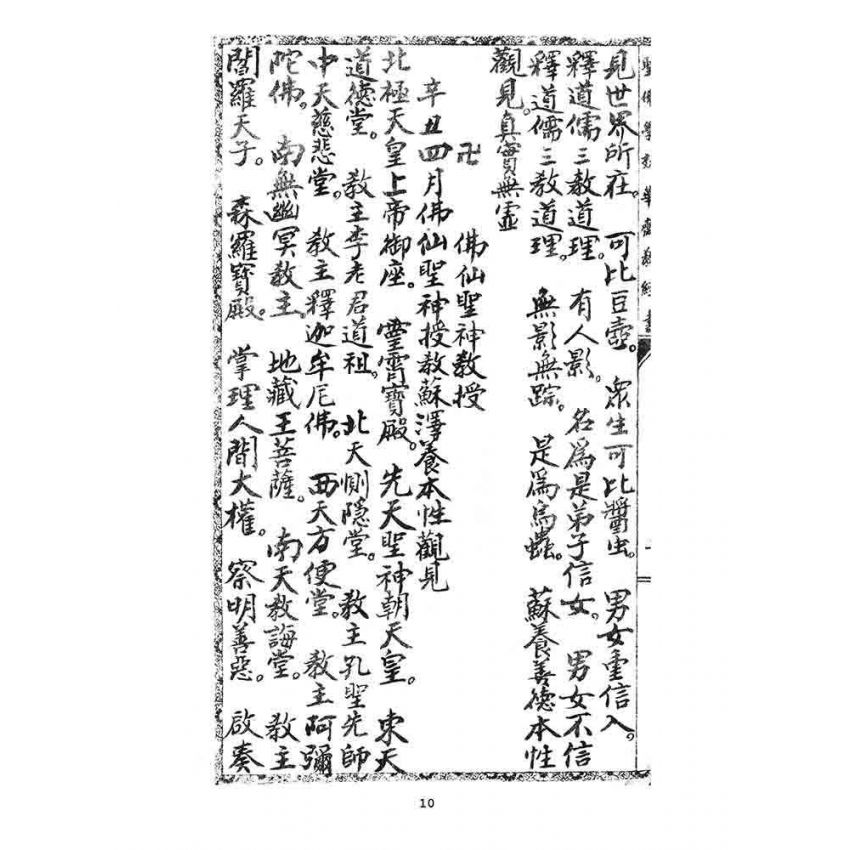 見世界所在。可比豆壺。眾生可比醬虫。男女重信入。
釋道儒三教道理。有人影。名為是弟子信女。男女不信
釋道儒三教道理。無影無踪。是為烏蟲。蘇養善德本性
觀見。真實無虛
卍 佛仙聖神教授
辛丑四月佛仙聖神授教蘇澤養本性觀見
北極天皇上帝御座。靈霄寶殿。先天聖神朝天皇。東天
道德堂。教主李老君道祖。北天惻隱堂。教主孔聖先師
中天慈悲堂。教主釋迦牟尼佛。西天方便堂。教主阿彌
陀佛。南無幽冥教主。地藏王菩薩。南天教誨堂。教主
閻羅天子。森羅寶殿。掌理人間大權。察明善惡。啟奏
10